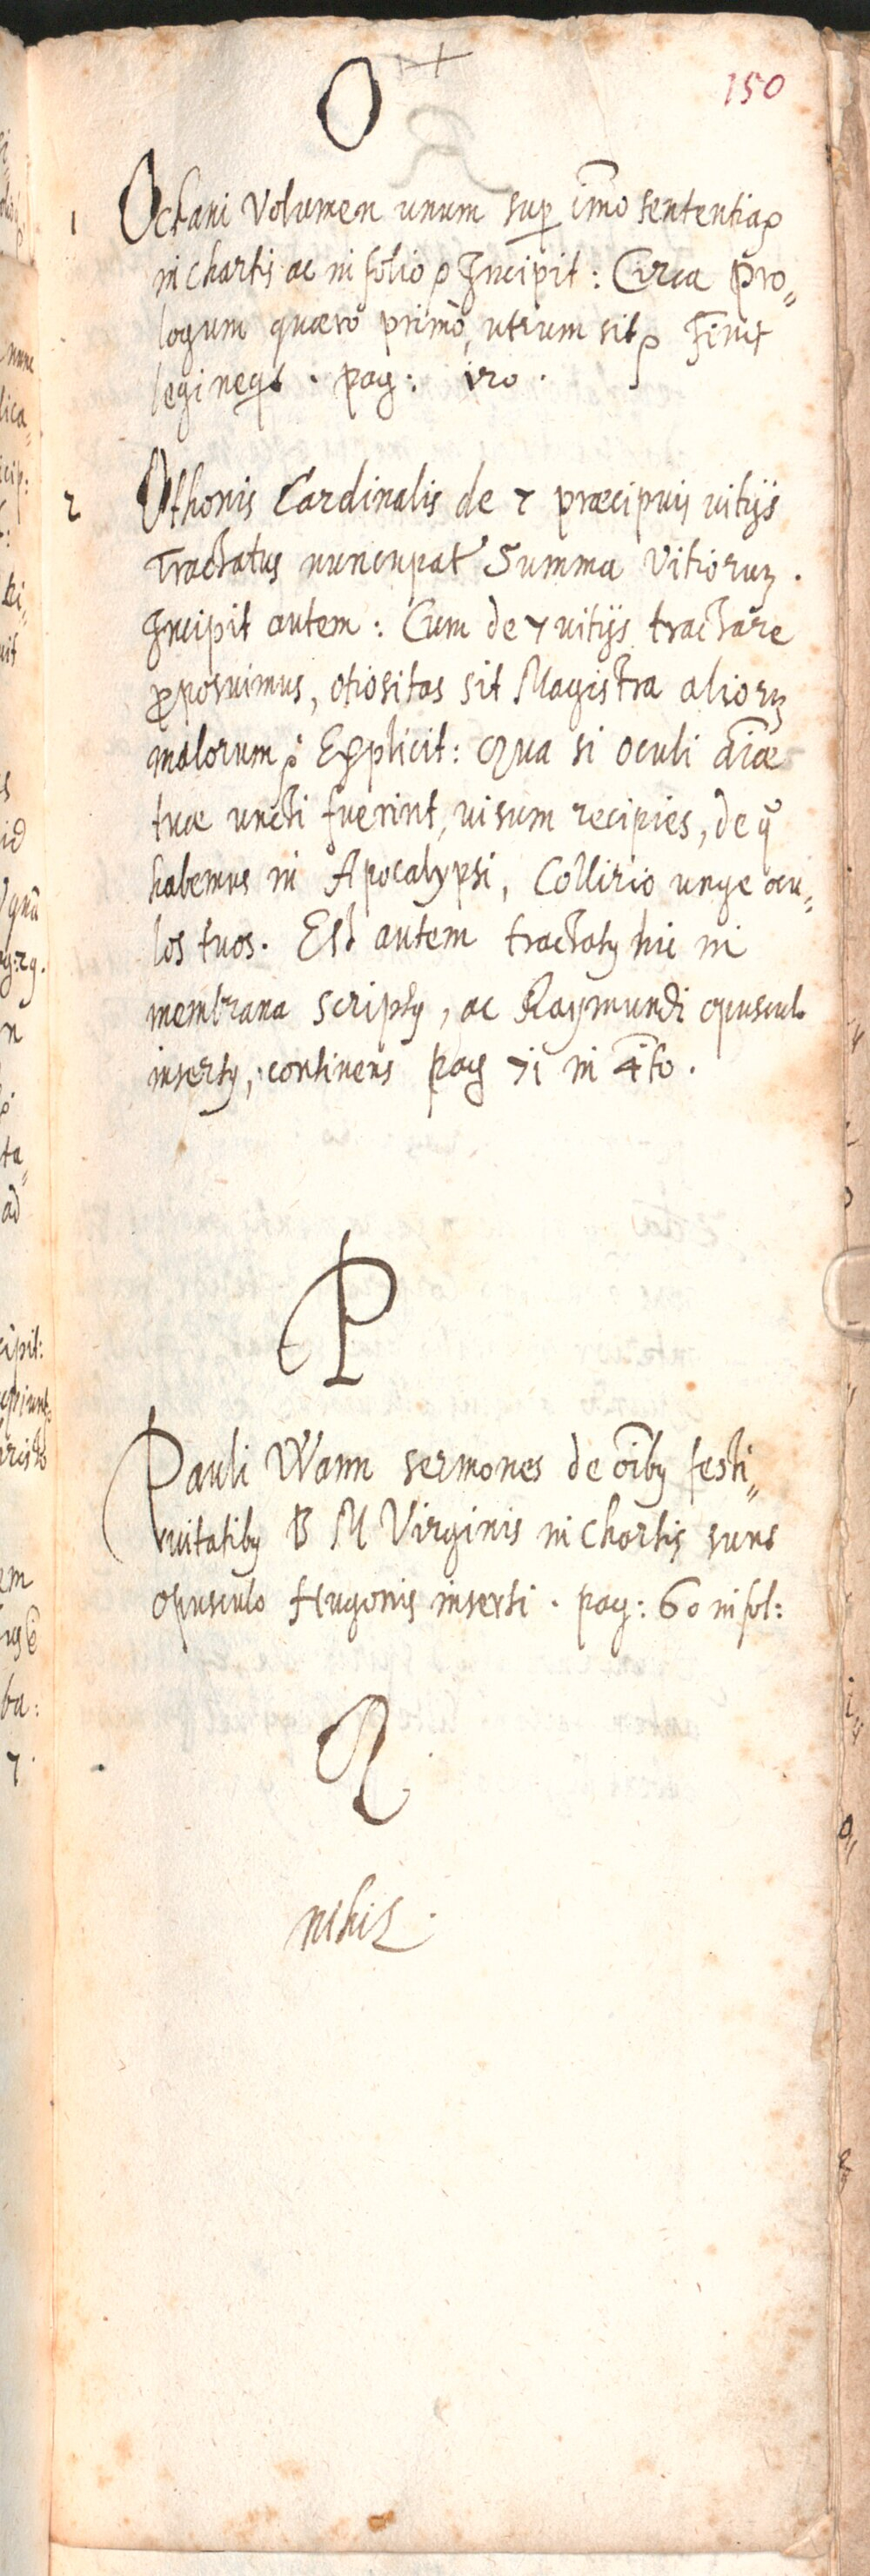 O +
150
1 Ockani Volumen unum sup̱ i̅mo sententiaꝝ
in chartis ac in folio ꝛ Incipit: Circa pro„
logum quæro primò, utrum sit ꝛ Finit
legi neq̱t. pag: 120.
2 Othonis Cardinalis de 7 præcipuij vitijs
Tractatus nuncupat' Summa Vitioruꝫ.
Incipit autem: Cum de 7 vitijs tractare
ꝓposuimus, otiositas sit Magistra alioruꝫ
malorum ꝛ Explicit: Qua si oculi ai̅æ
tuæ uncti fuerint, visum recipies, de q̃
habemus in Apocalypsi, Collirio unge ocu„
los tuos. Est autem tractatꝯ hic in
membrana scriptꝯ, ac Raymundi opuscul.
insertꝯ, continens pag 71 in 4to.
P
Pauli Wann sermones de o̅ibꝯ festi„
uitatibꝯ B M Virginis in chartis sunt
opusculo Hugonis inserti. pag: 60 in fol:
Q.
nihil.